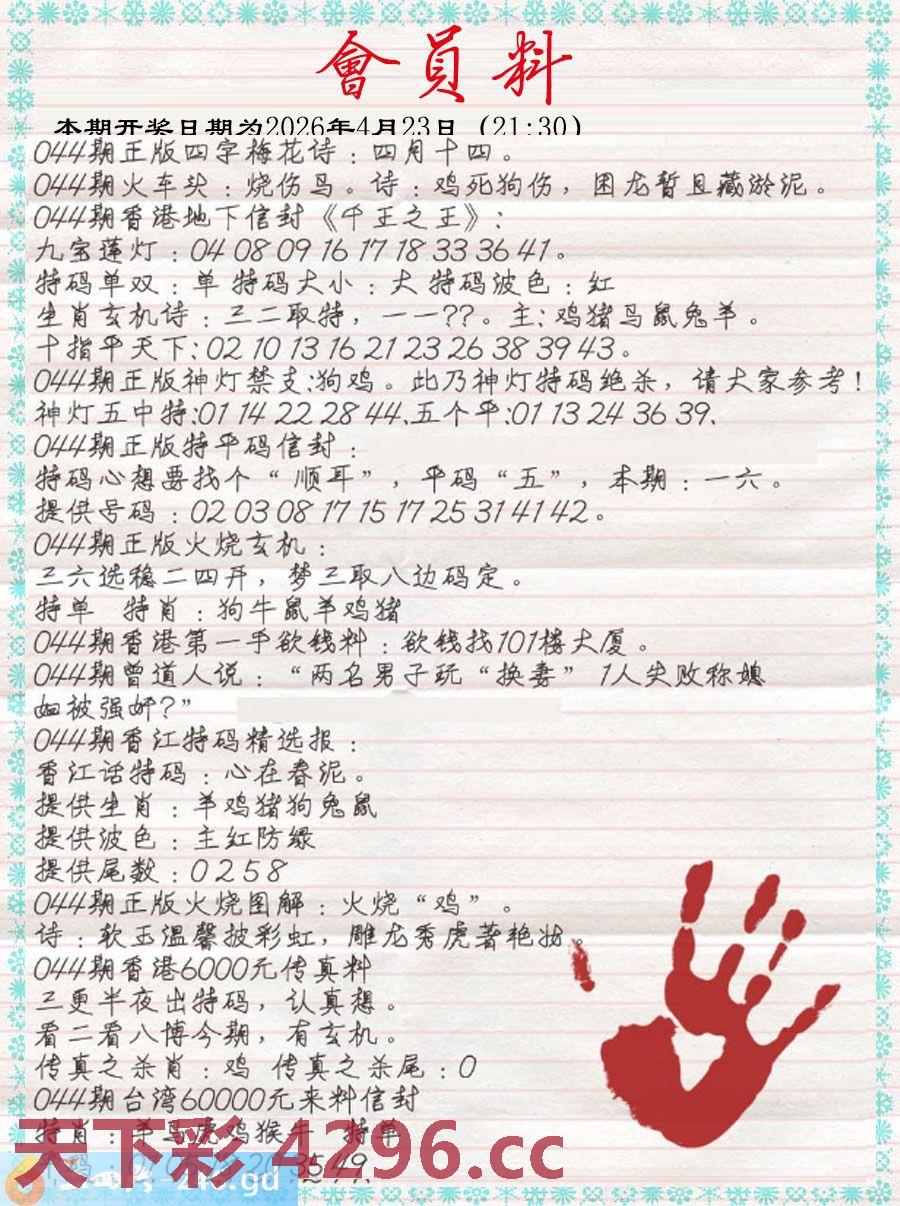 會員料
本期开奖日期为2026年4月23日（21:30）
044期正版四字梅花诗：四月十四。
044期火车头：烧伤鸟。诗：鸡死狗伤，困龙暂且藏淤泥。
044期香港地下信封《千王之王》：
九宝莲灯：04 08 09 16 17 18 33 36 41。
特码单双：单 特码大小：大 特码波色：红
生肖玄机诗：三二取特，一一??。主：鸡猪马鼠兔羊。
十指平天下：02 10 13 16 21 23 26 38 39 43。
044期正版神灯禁支：狗鸡。此乃神灯特码绝杀，请大家参考！
神灯五中特：01 14 22 28 44、五个平：01 13 24 36 39、
044期正版特平码信封：
特码心想要找个“顺耳”，平码“五”，本期：一六。
提供号码：02 03 08 17 15 17 25 31 41 42。
044期正版火烧玄机：
三六选稳二四开，梦三取八边码定。
特单 特肖：狗牛鼠羊鸡猪
044期香港第一手欲钱料：欲钱找101楼大厦。
044期曾道人说：“两名男子玩“换妻” 1人失败称媳
妇被强奸？”
044期香江特码精选报：
香江话特码：心在春泥。
提供生肖：羊鸡猪狗兔鼠
提供波色：主红防绿
提供尾数：0 2 5 8
044期正版火烧图解：火烧“鸡”。
诗：软玉温馨披彩虹，雕龙秀虎著艳妆。
044期香港6000元传真料
三更半夜出特码，认真想。
看二看八博今期，有玄机。
传真之杀肖：鸡 传真之杀尾：0
044期台湾60000元来料信封
特肖：羊马虎鸡猴牛 特单
天下彩 4296.cc
35 49
.gd